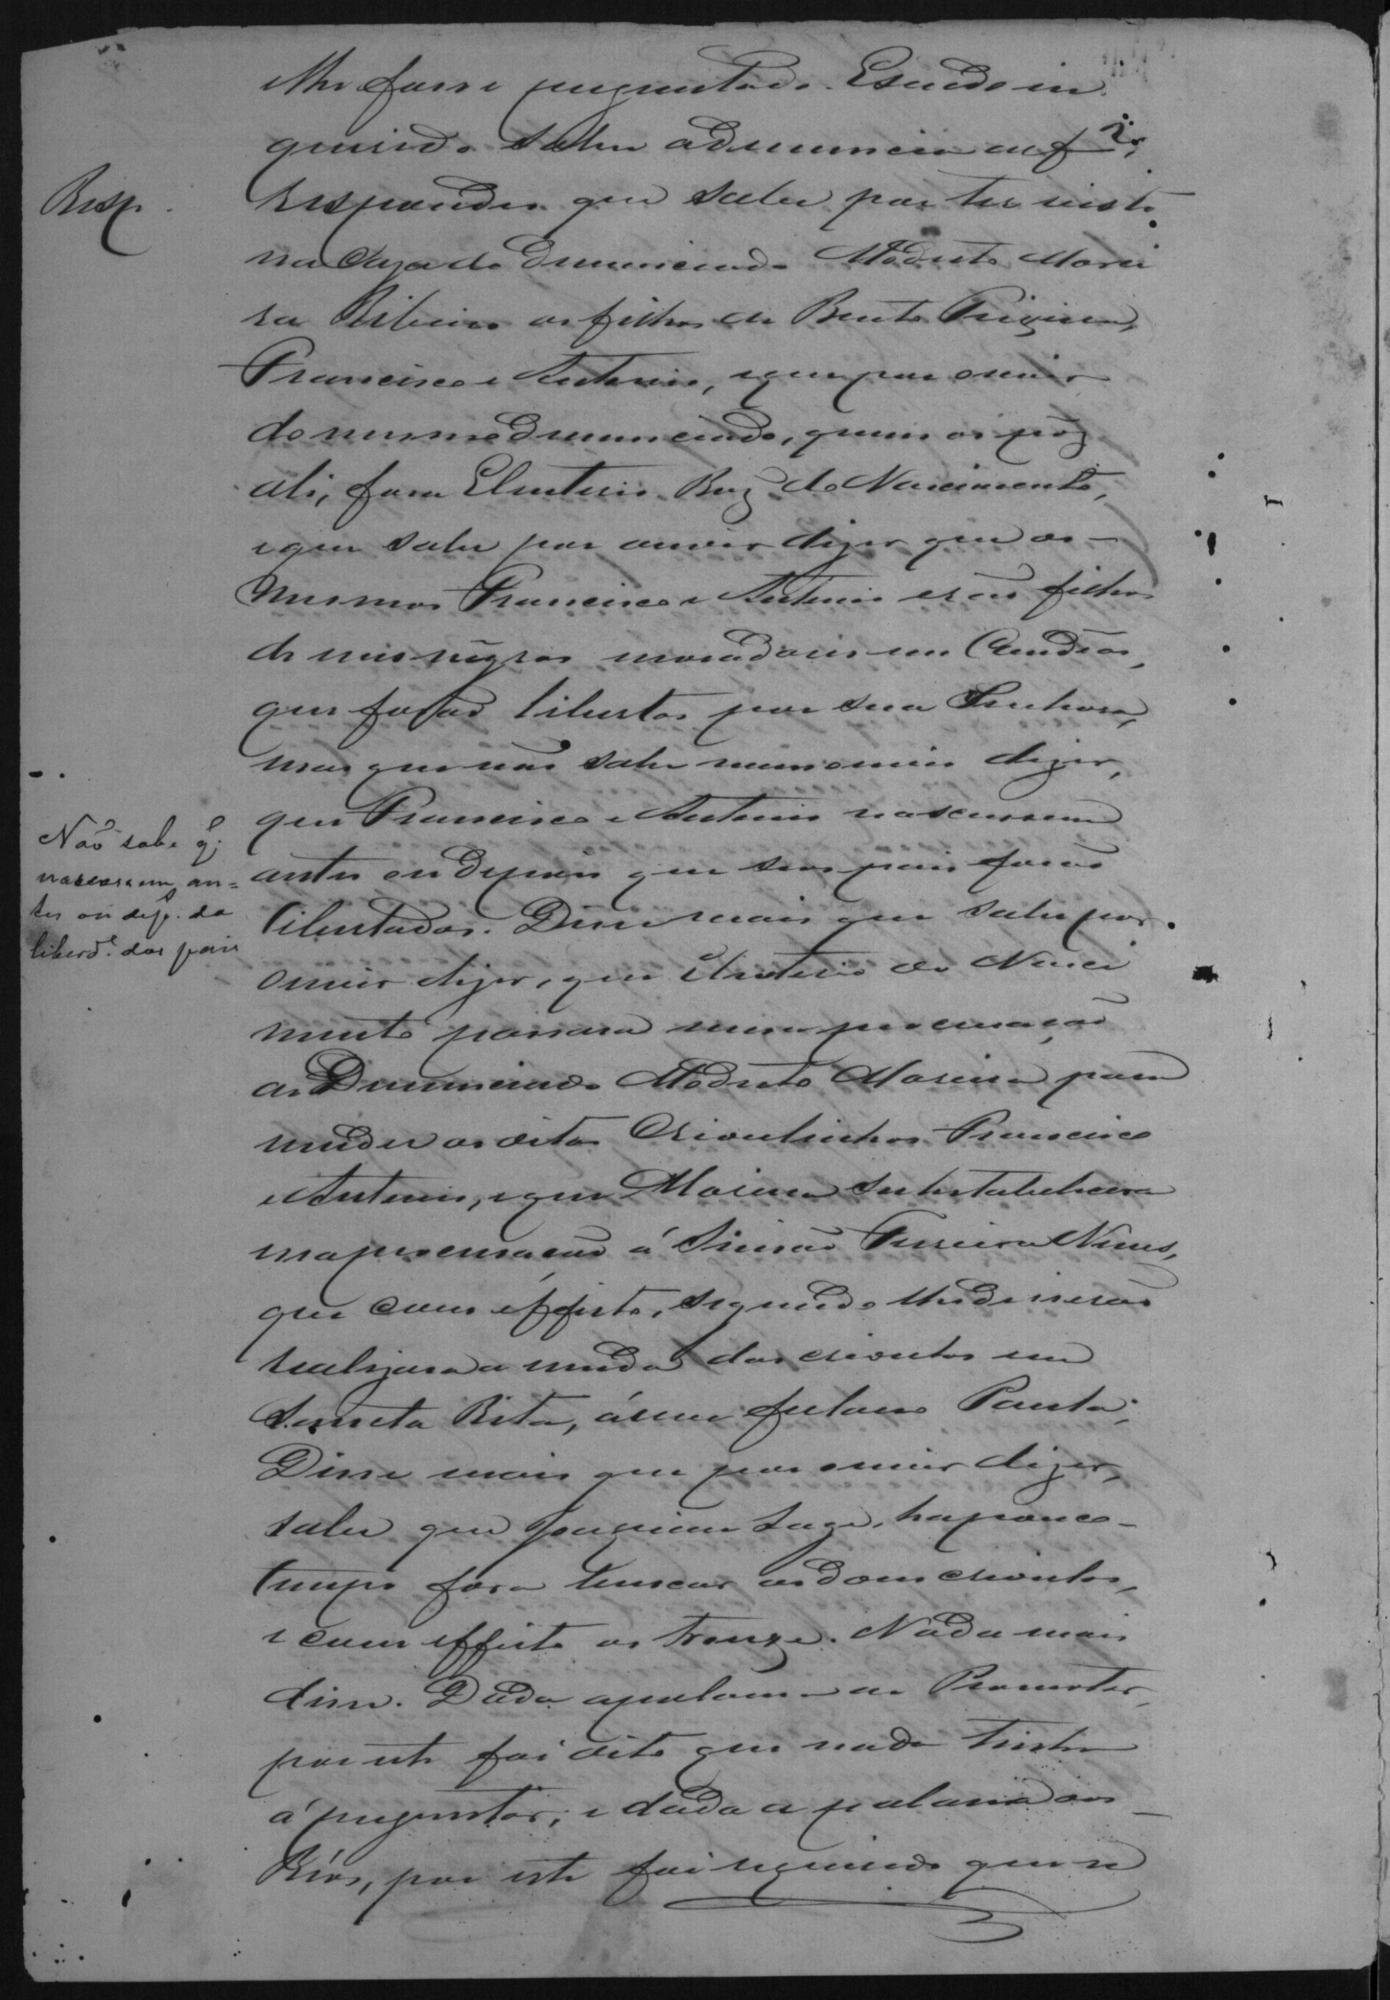 lhe fosse perguntado. E sendo in
querido sobre a denuncia de f 2,
Resp.
respondeu que sabe por ter visto
na caza do denunciado Modesto Morei
ra Ribeiro os filhos de Bento
Francisco e Antonio, e que por ouvir
do mesmo denunciado, quem os poz
ali, fora Eleuterio Roiz do Nascimento,
e que sabe por ouvir dizer que os
mesmos Francisco e Antonio erão filhos
de uns negros moradores em
que forão libertos por sua Senhora,
mas que não sabe nem ouvio dizer,
que Francisco e Antonio nascessem
antes ou depois que seus pais forão
libertados. Disse mais que sabe por
Não sabe q.
nascessem an=
tes ou dep. da
liberd.e dos pais
ouvir dizer, que Eleuterio do Nasci
mento passara uma procuração
ao Denunciado Modesto Moreira para
vender os ditos Crioulinhos Francisco
e Antonio, e que Moreira substabelecera
na procuração á Simão Ferreira Nunes,
que com effeito, segundo lhe disserão
realizara a venda dos crioulos em
Santa Rita, á um fulano Penta;
Disse mais que por ouvir dizer,
sabe que Joaquim Lage, ha pouco
tempo fora buscar os dous crioulos,
e com effeito os trouxe. Nada mais
disse. Dada a palavra ao Promotor,
por este foi dito que nada tinha
á perguntar; e dada a palavra aos
Réos, por este foi requerido que se